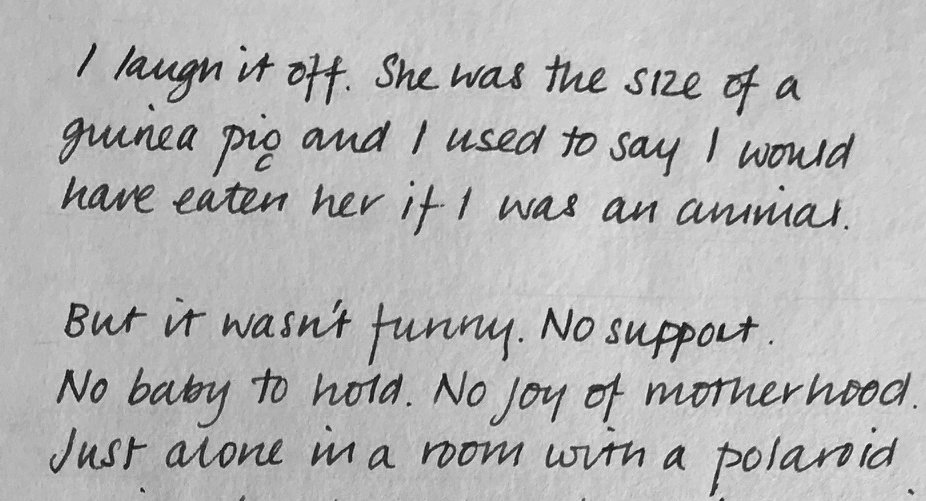 I laugh it off. She was the size of a
guinea pig and I used to say I would
have eaten her if I was an animal.
But it wasn't funny. No support.
No baby to hold. No joy of motherhood.
Just alone in a room with a polaroid